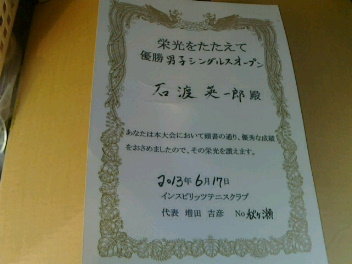 栄光をたたえて
優勝 男子シングルスオープン
石渡 英一郎 殿
あなたは本大会において頭書の通り、優秀な成績
をおさめましたので、その栄光を讃えます。
2013年6月17日
インスピリッツテニスクラブ
代表 増田 吉彦 No.秋ヶ瀬